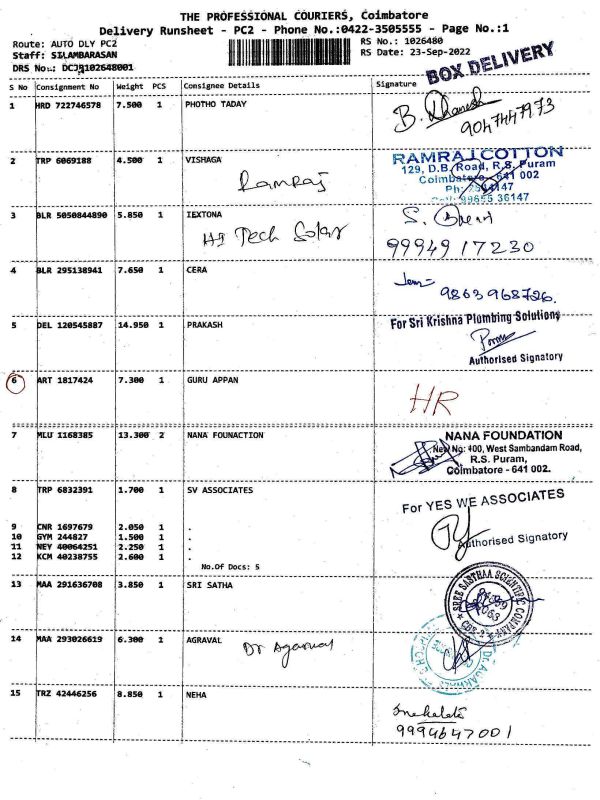 THE PROFESSIONAL COURIERS, Coimbatore
Delivery Runsheet - PC2 - Phone No.:0422-3505555 - Page No.:1
Route: AUTO DLY PC2
RS No.: 1026480
Staff: SILAMBARASAN
RS Date: 23-Sep-2022
BOX DELIVERY
S No Consignment No Weight PCS Consignee Details Signature
1 HRD 722746578 7.500 1 PHOTHO TADAY
B.
9047447973
2 TRP 6069188 4.500 1 VISHAGA
Ramraj
RAMRAJ COTTON
129, D.B. Road, R.S. Puram
Coimbatore - 641 002
3 BLR 5050844890 5.850 1 IEXTONA
Hi Tech Solar
S.
9994917230
4 BLR 295138941 7.650 1 CERA
9863968726
5 DEL 120545887 14.950 1 PRAKASH
For Sri Krishna Plumbing Solutions
Authorised Signatory
6 ART 1817424 7.300 1 GURU APPAN
HR
7 MLU 1168385 13.300 2 NANA FOUNACTION
NANA FOUNDATION
New No: 400, West Sambandam Road,
R.S. Puram,
Coimbatore - 641 002.
8 TRP 6832391 1.700 1 SV ASSOCIATES
For YES WE ASSOCIATES
Authorised Signatory
9 CNR 1697679 2.050 1 .
10 GYM 244827 1.500 1 .
11 NEY 40064251 2.250 1 .
12 KCM 40238755 2.600 1 .
No.Of Docs: 5
13 MAA 291636708 3.850 1 SRI SATHA
SREE SASTHAA SCIENTIFIC COMPANY
14 MAA 293026619 6.300 1 AGRAVAL
Dr Agarwal
15 TRZ 42446256 8.850 1 NEHA
Snehalata
9994647001